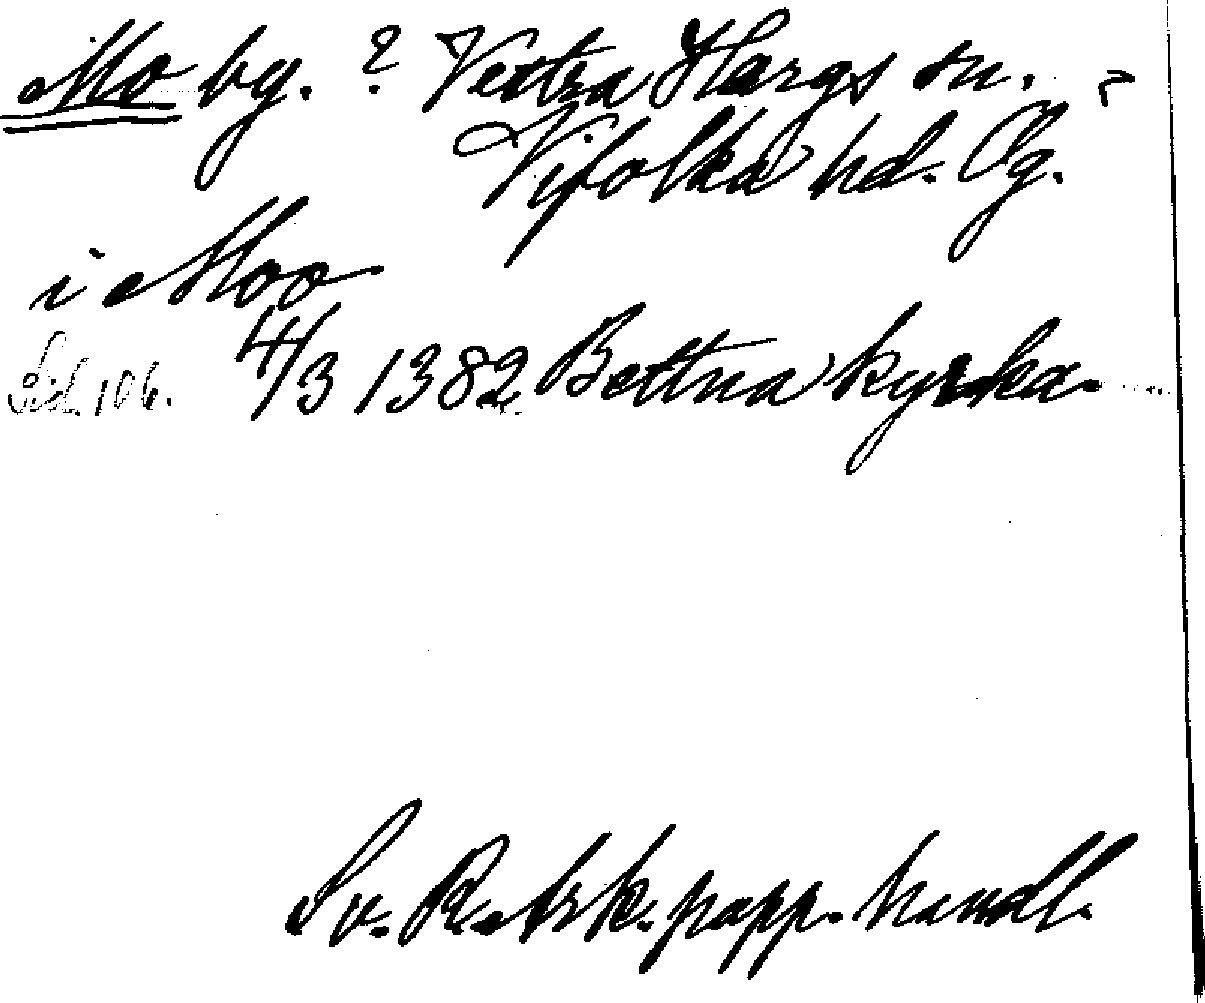 Mo by. ? Vestra Hargs sn. ?
Vifolka hd. Ög.
i Moo
4/3 1382 Bettna kyrka.
Sv. R. Ark. papp. handl.